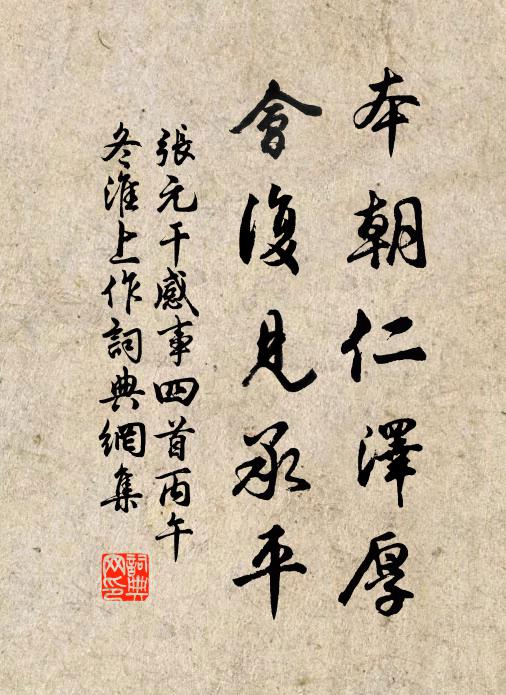 本朝仁澤厚
會復見承平
張元干感事四首丙午
冬淮上作詞典網集
詞典網印